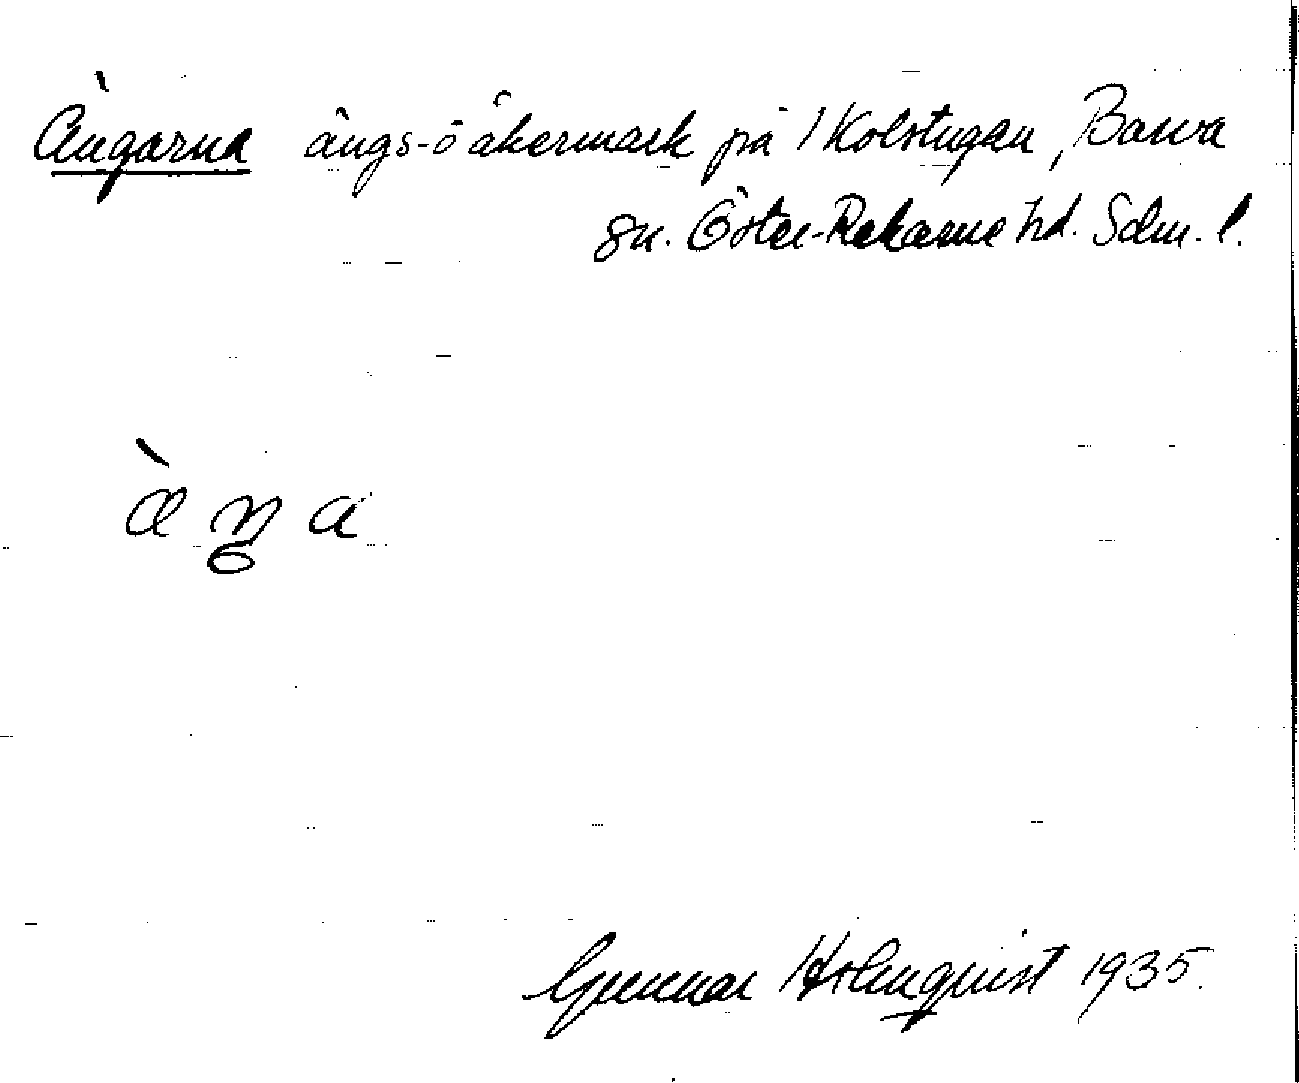 Ängarna ängs- o åkermark på Kolstugan, Barva
sn. Öster-Rekarne hd. Sdm. l.
æ̀ŋa
Gunnar Holmquist 1935.